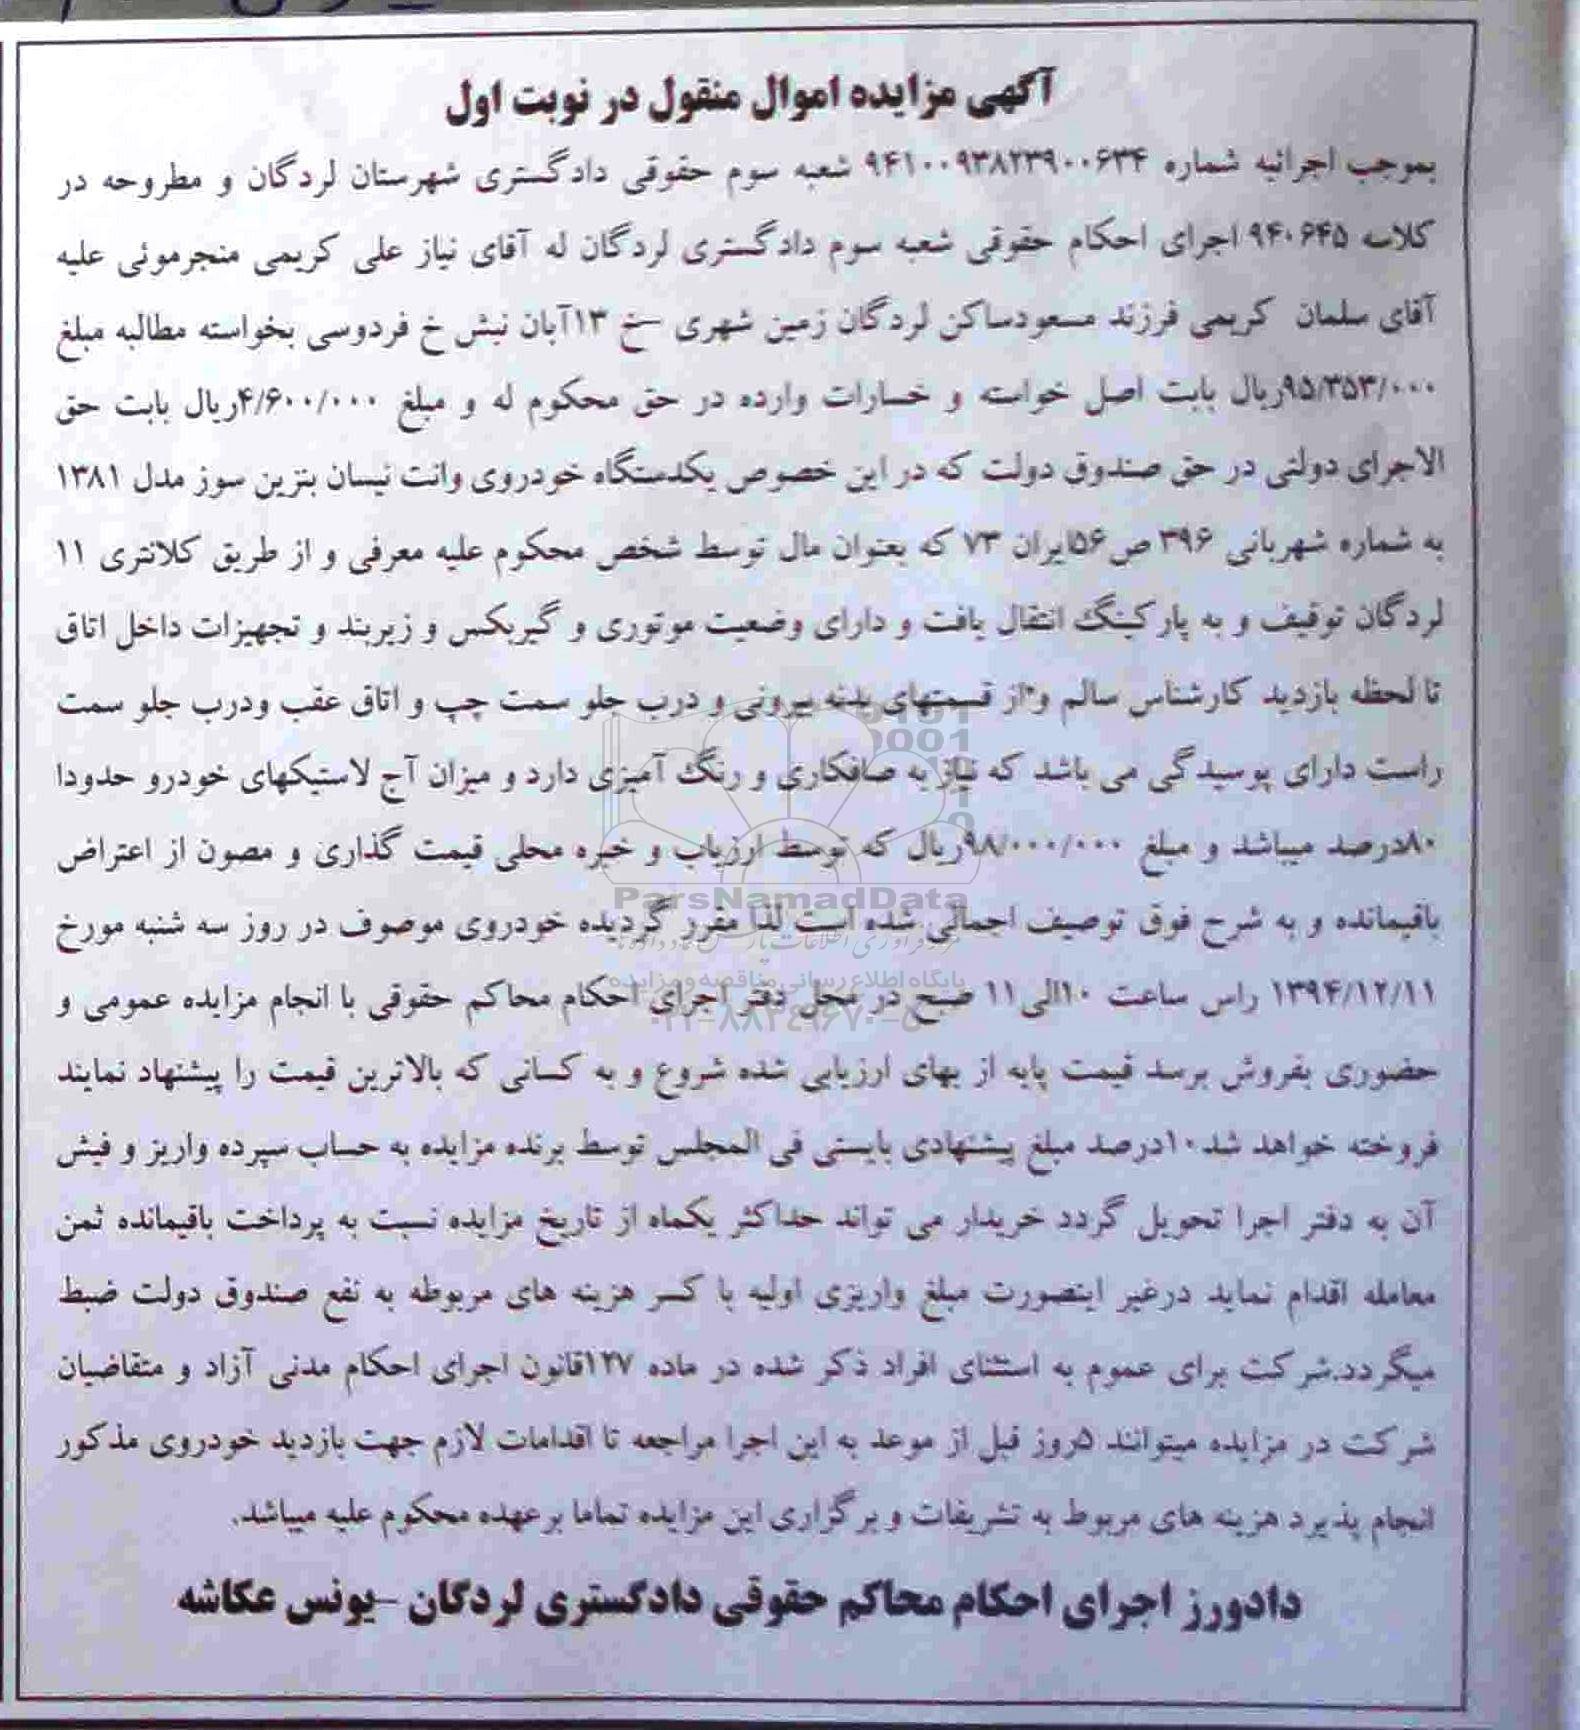 آگهی مزایده اموال منقول در نوبت اول
بموجب اجرائیه شماره ۹۴۱۰۰۹۳۸۲۳۹۰۰۶۳۴ شعبه سوم حقوقی دادگستری شهرستان لردگان و مطروحه در
کلاسه ۹۴۰۶۴۵ اجرای احکام حقوقی شعبه سوم دادگستری لردگان له آقای نیاز علی کریمی منجرموئی علیه
آقای سلمان کریمی فرزند مسعودساکن لردگان زمین شهری –خ ۱۳آبان نبش خ فردوسی بخواسته مطالبه مبلغ
۹۵/۳۵۳/۰۰۰ریال بابت اصل خواسته و خسارات وارده در حق محکوم له و مبلغ ۴/۶۰۰/۰۰۰ریال بابت حق
الاجرای دولتی در حق صندوق دولت که در این خصوص یکدستگاه خودروی وانت نیسان بنزین سوز مدل ۱۳۸۱
به شماره شهربانی ۳۹۶ ص۵۶ایران ۷۳ که بعنوان مال توسط شخص محکوم علیه معرفی و از طریق کلانتری ۱۱
لردگان توقیف و به پارکینگ انتقال یافت و دارای وضعیت موتوری و گیربکس و زیربند و تجهیزات داخل اتاق
تا لحظه بازدید کارشناس سالم و از قسمتهای بدنه بیرونی و درب جلو سمت چپ و اتاق عقب ودرب جلو سمت
راست دارای پوسیدگی می باشد که نیاز به صافکاری و رنگ آمیزی دارد و میزان آج لاستیکهای خودرو حدودا
۸۰درصد میباشد و مبلغ ۹۸/۰۰۰/۰۰۰ریال که توسط ارزیاب و خبره محلی قیمت گذاری و مصون از اعتراض
ParsNamadData
باقیمانده و به شرح فوق توصیف اجمالی شده است لذا مقرر گردیده خودروی موصوف در روز سه شنبه مورخ
پایگاه اطلاع رسانی مناقصه و مزایده
۱۳۹۴/۱۲/۱۱ راس ساعت ۱۰الی۱۱ صبح در محل دفتر اجرای احکام محاکم حقوقی با انجام مزایده عمومی و
۰۲۱-۸۸۳۴۹۶۷۰-۵
حضوری بفروش برسد قیمت پایه از بهای ارزیابی شده شروع و به کسانی که بالاترین قیمت را پیشنهاد نمایند
فروخته خواهد شد۱۰درصد مبلغ پیشنهادی بایستی فی المجلس توسط برنده مزایده به حساب سپرده واریز و فیش
آن به دفتر اجرا تحویل گردد خریدار می تواند حداکثر یکماه از تاریخ مزایده نسبت به پرداخت باقیمانده ثمن
معامله اقدام نماید درغیر اینصورت مبلغ واریزی اولیه با کسر هزینه های مربوطه به نفع صندوق دولت ضبط
میگردد.شرکت برای عموم به استثنای افراد ذکر شده در ماده ۱۲۷قانون اجرای احکام مدنی آزاد و متقاضیان
شرکت در مزایده میتوانند ۵روز قبل از موعد به این اجرا مراجعه تا اقدامات لازم جهت بازدید خودروی مذکور
انجام پذیرد هزینه های مربوط به تشریفات و برگزاری این مزایده تماما برعهده محکوم علیه میباشد.
دادورز اجرای احکام محاکم حقوقی دادگستری لردگان –یونس عکاشه